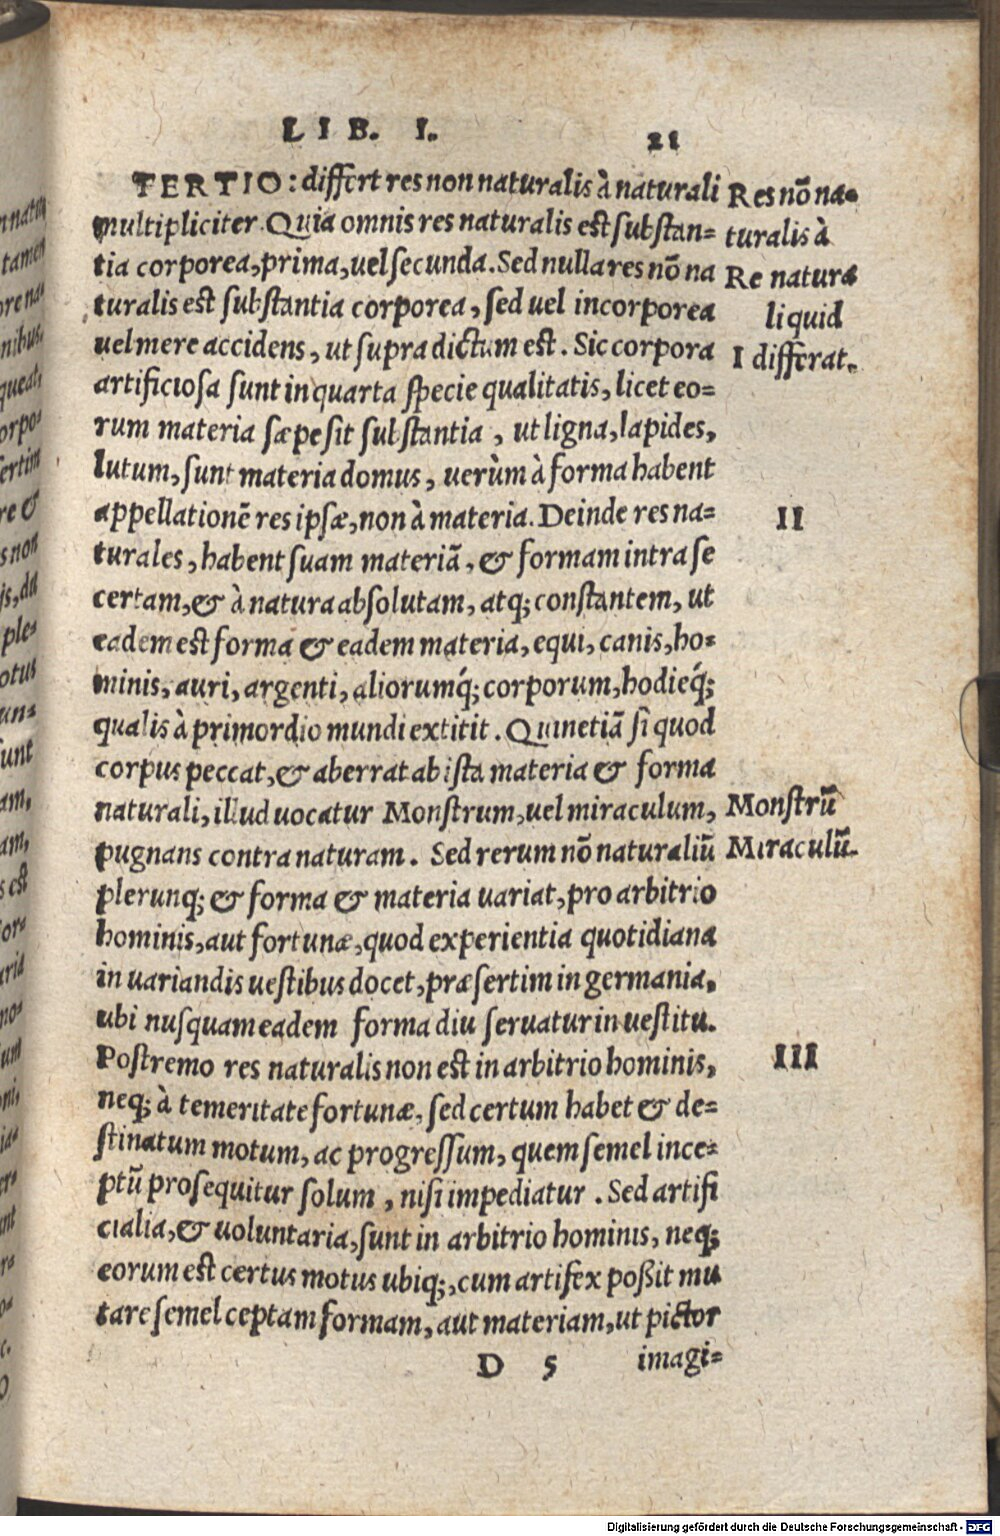 LIB. I. 21
TERTIO: differt res non naturalis à naturali
multipliciter. Quia omnis res naturalis est substan=
tia corporea, prima, uel secunda. Sed nulla res nõ na
turalis est substantia corporea, sed uel incorporea
uel mere accidens, ut supra dictum est. Sic corpora
artificiosa sunt in quarta specie qualitatis, licet eo=
rum materia sæpe sit substantia, ut ligna, lapides,
lutum, sunt materia domus, uerùm à forma habent
appellationẽ res ipsæ, non à materia. Deinde res na=
turales, habent suam materiã, & formam intra se
certam, & à natura absolutam, atq; constantem, ut
eadem est forma & eadem materia, equi, canis, ho=
minis, auri, argenti, aliorumq́; corporum, hodieq́;
qualis à primordio mundi extitit. Quinetiã si quod
corpus peccat, & aberrat ab ista materia & forma
naturali, illud uocatur Monstrum, uel miraculum,
pugnans contra naturam. Sed rerum nõ naturaliũ
plerunq; & forma & materia uariat, pro arbitrio
hominis, aut fortunæ, quod experientia quotidiana
in uariandis uestibus docet, præsertim in germania,
ubi nusquam eadem forma diu seruatur in uestitu.
Postremo res naturalis non est in arbitrio hominis,
neq; à temeritate fortunæ, sed certum habet & de=
stinatum motum, ac progressum, quem semel ince=
ptũ prosequitur solum, nisi impediatur. Sed artifi
cialia, & uoluntaria, sunt in arbitrio hominis, neq;
eorum est certus motus ubiq;, cum artifex poßit mu
tare semel ceptam formam, aut materiam, ut pictor
D 5 imagi=
Res nõ na=
turalis à
Re natura
liquid
I differat.
II
Monstrũ
Miraculũ.
III
Digitalisierung gefördert durch die Deutsche Forschungsgemeinschaft - DFG